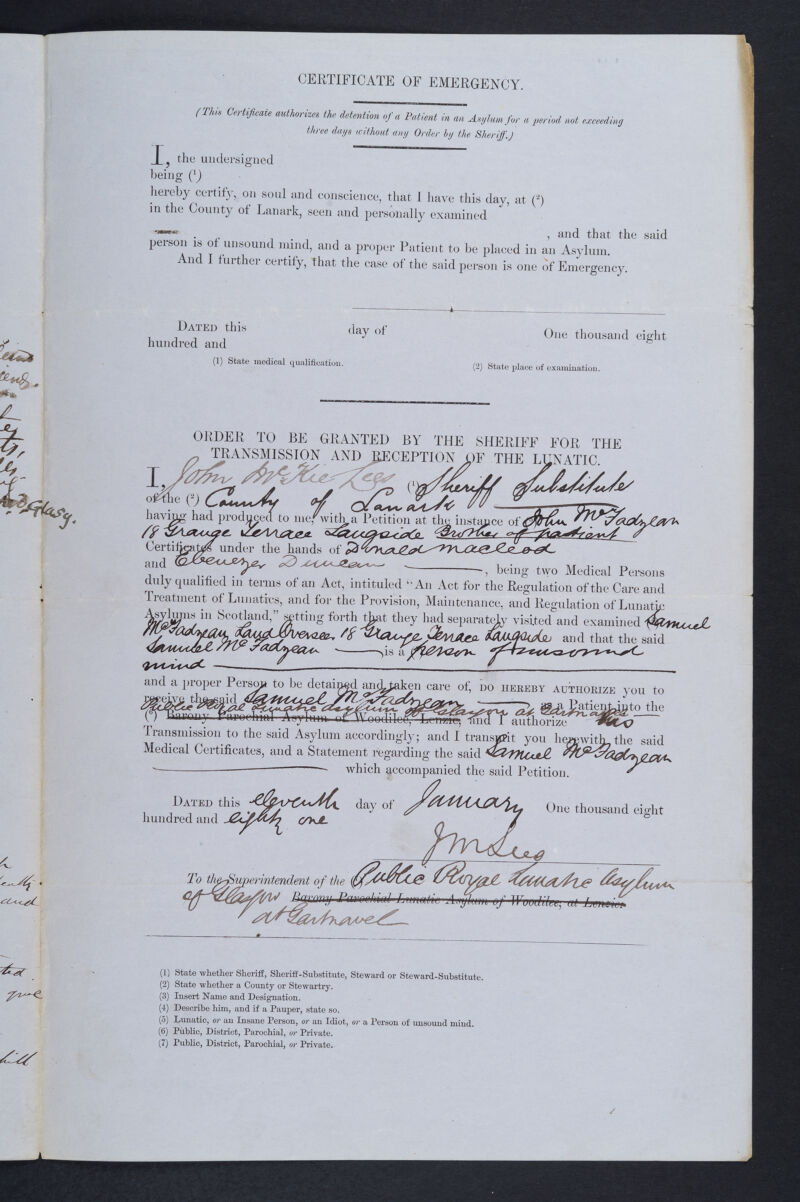 CERTIFICATE OF EMERGENCY.
(This Certificate authorizes the detention of a Patient in an Asylum for a period not exceeding
three days without any Order by the Sheriff.)
I, the undersigned
being (1)
hereby certify, on soul and conscience, that I have this day, at (2)
in the County of Lanark, seen and personally examined
, and that the said
person is of unsound mind, and a proper Patient to be placed in an Asylum.
And I further certify, that the case of the said person is one of Emergency.
DATED this day of One thousand eight
hundred and
(1) State medical qualification. (2) State place of examination.
ORDER TO BE GRANTED BY THE SHERIFF FOR THE
TRANSMISSION AND RECEPTION OF THE LUNATIC.
I, John McKie Lees (1) Sheriff Substitute
of the (2) County of Lanark
having had produced to me, with a Petition at the instance of John McFadzean
18 Grange Terrace Langside Brother of patient
Certificates under the hands of Donald Macleod
and Ebenezer Duncan, being two Medical Persons
duly qualified in terms of an Act, intituled "An Act for the Regulation of the Care and
Treatment of Lunatics, and for the Provision, Maintenance, and Regulation of Lunatic
Asylums in Scotland," setting forth that they had separately visited and examined Samuel
McFadzean, Land Overseer, 18 Grange Terrace Langside and that the said
Samuel McFadzean is a person of unsound
mind
and a proper Person to be detained and taken care of, DO HEREBY AUTHORIZE you to
receive the said Samuel McFadzean as a Patient into the
Public Royal Lunatic Asylum of Glasgow at Gartnavel
Barony Parochial Asylum of Woodilee, Lenzie, and I authorize his
Transmission to the said Asylum accordingly; and I transmit you herewith the said
Medical Certificates, and a Statement regarding the said Samuel McFadzean
which accompanied the said Petition.
DATED this eleventh day of January One thousand eight
hundred and eighty one
J M Lees
To the Superintendent of the Public Royal Lunatic Asylum
of Glasgow Barony Parochial Lunatic Asylum of Woodilee, at Lenzie.
at Gartnavel
(1) State whether Sheriff, Sheriff-Substitute, Steward or Steward-Substitute.
(2) State whether a County or Stewartry.
(3) Insert Name and Designation.
(4) Describe him, and if a Pauper, state so.
(5) Lunatic, or an Insane Person, or an Idiot, or a Person of unsound mind.
(6) Public, District, Parochial, or Private.
(7) Public, District, Parochial, or Private.